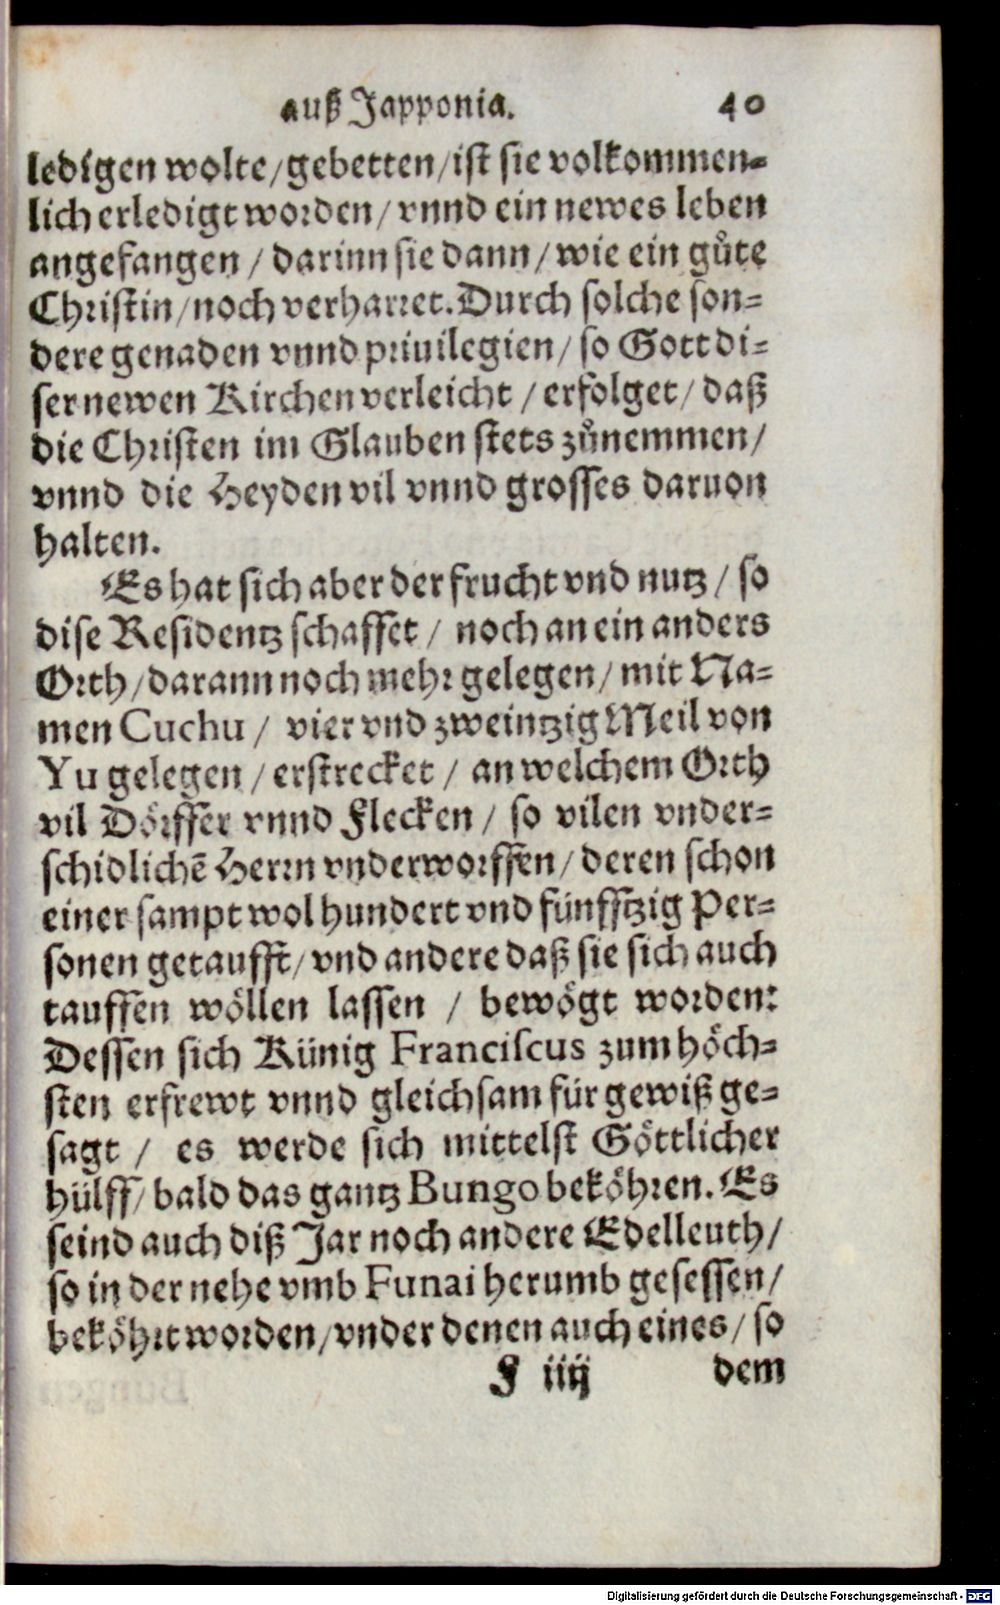 auß Japponia. 40
ledigen wolte/gebetten/ist sie volkommen-
lich erledigt worden/ vnnd ein newes leben
angefangen / darinn sie dann/ wie ein gůte
Christin/noch verharret. Durch solche son-
dere genaden vnnd priuilegien/ so Gott di-
ser newen Kirchen verleicht / erfolget/ daß
die Christen im Glauben stets zůnemmen/
vnnd die Heyden vil vnnd grosses daruon
halten.
Es hat sich aber der frucht vnd nutz / so
dise Residentz schaffet / noch an ein anders
Orth/darann noch mehr gelegen/ mit Na-
men Cuchu / vier vnd zweintzig Meil von
Yu gelegen / erstrecket / an welchem Orth
vil Dörffer vnnd Flecken / so vilen vnder-
schidlichẽ Herrn vnderworffen/ deren schon
einer sampt wol hundert vnd fünfftzig Per-
sonen getaufft/ vnd andere daß sie sich auch
tauffen wöllen lassen / bewögt worden:
Dessen sich Künig Franciscus zum höch-
sten erfrewt vnnd gleichsam für gewiß ge-
sagt / es werde sich mittelst Göttlicher
hülff/ bald das gantz Bungo beköhren. Es
seind auch diß Jar noch andere Edelleuth/
so in der nehe vmb Funai herumb gesessen/
beköhrt worden/vnder denen auch eines/ so
F iiij dem
Digitalisierung gefördert durch die Deutsche Forschungsgemeinschaft - DFG